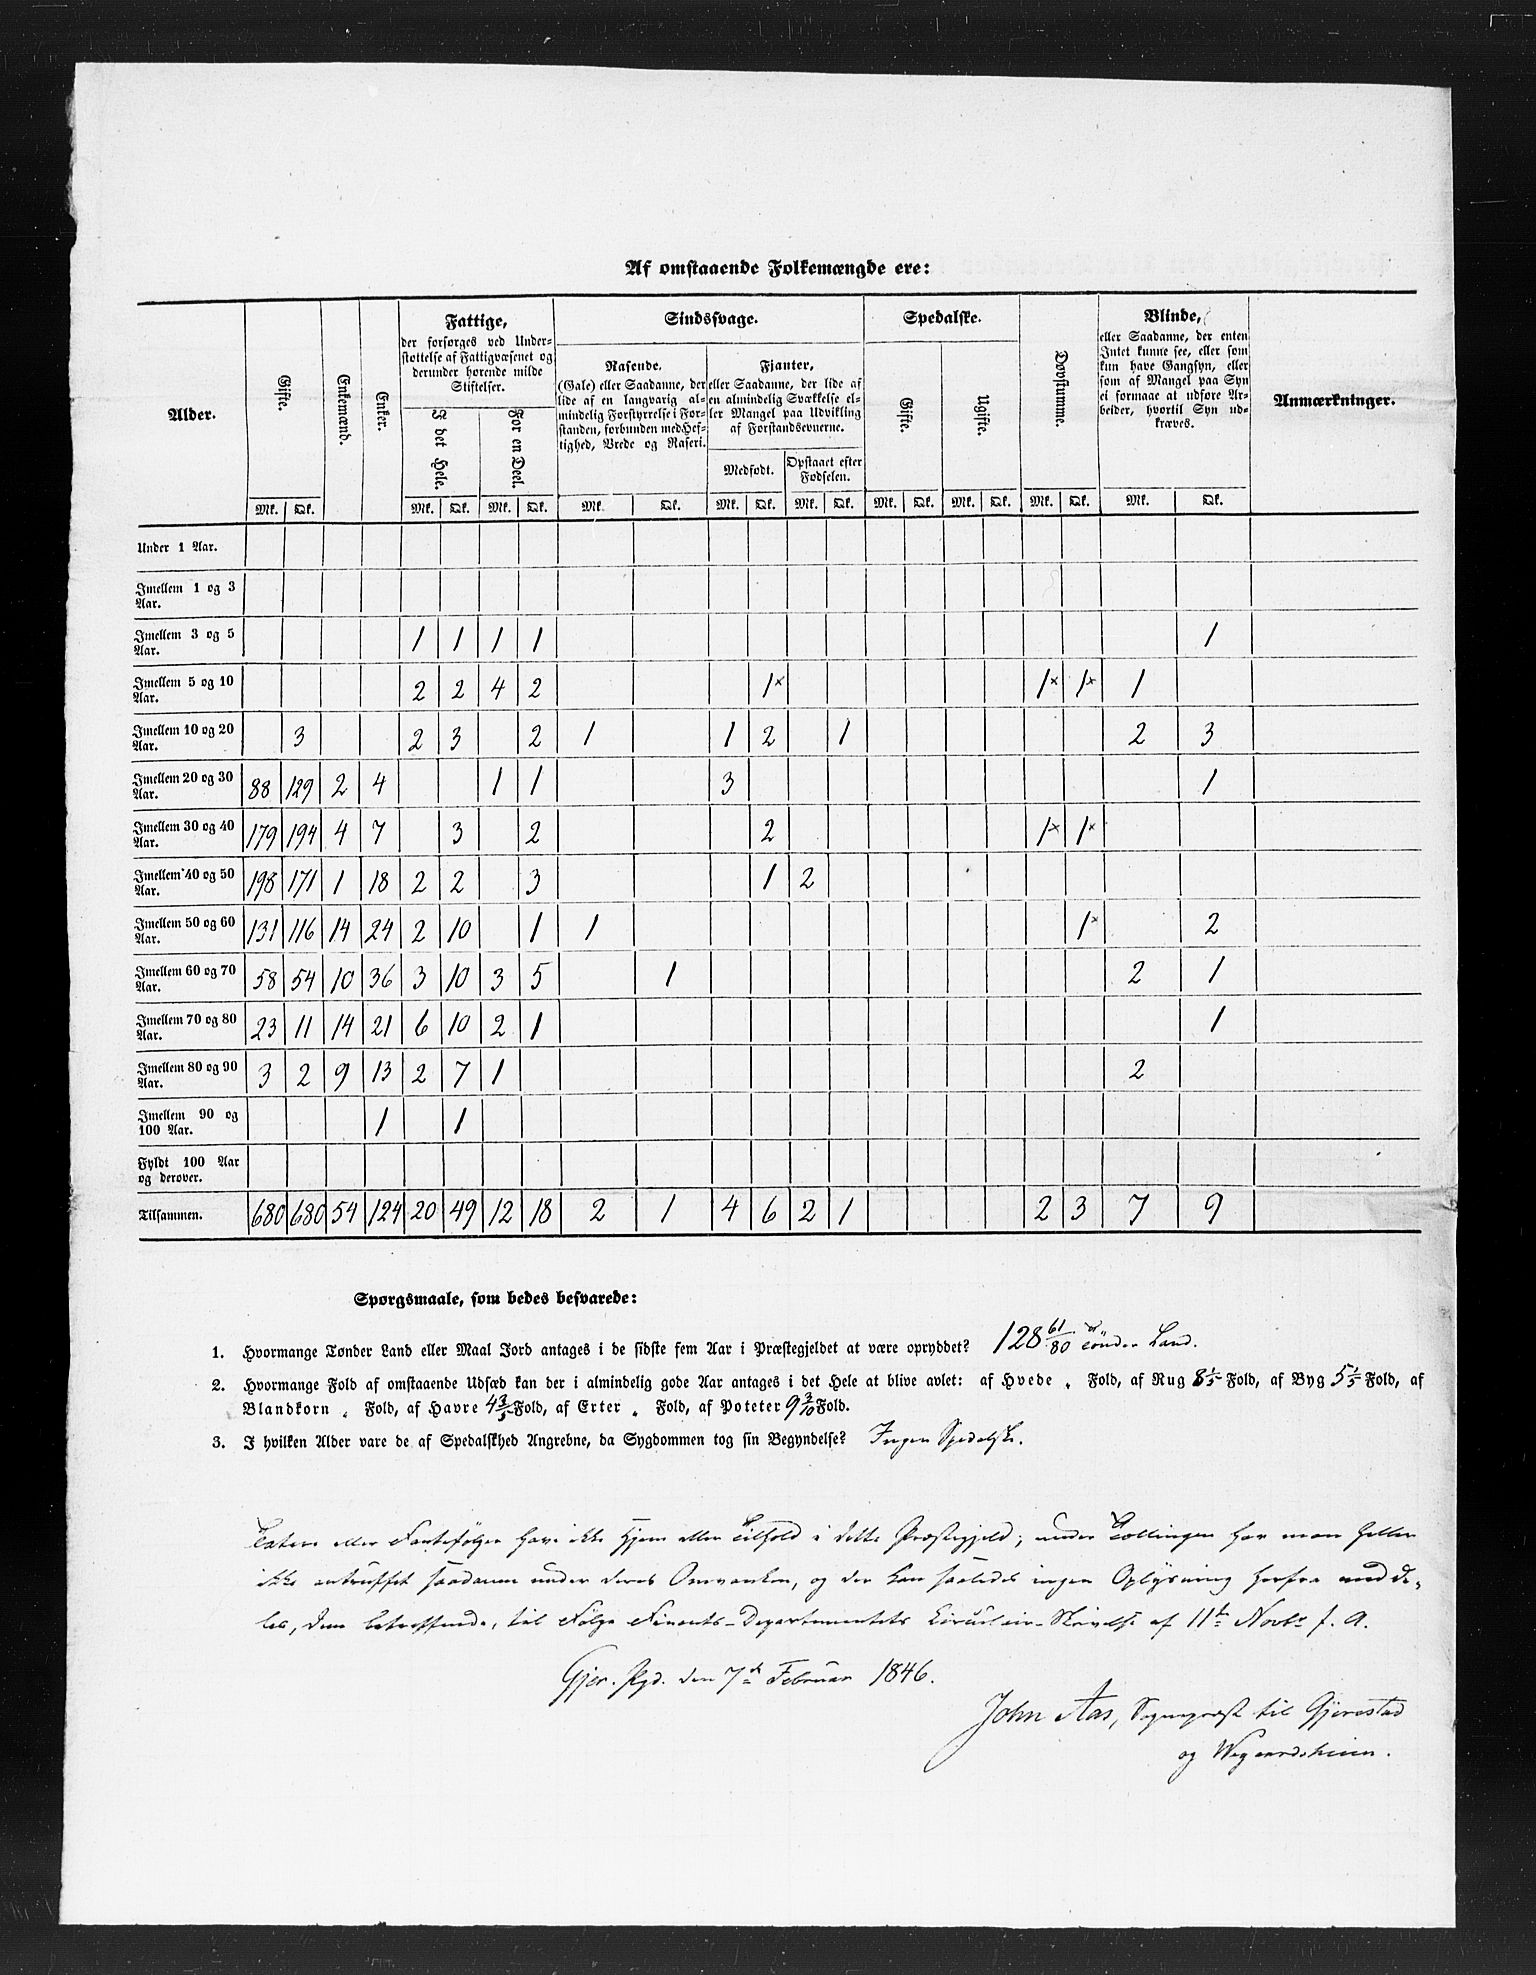 Af omstaaende Folkemængde ere:
Alder. Gifte. Enkemænd. Enker. Fattige, der forsørges ved Under-
støttelse af Fattigvæsenet og
derunder hørende milde
Stiftelser.
I det Hele. For en Deel.
Sindssvage.
Rasende,
(Gale) eller Saadanne, der
lide af en langvarig al-
mindelig Forstyrrelse i For-
standen, forbunden med Hef-
tighed, Vrede og Raseri.
Fjanter,
eller Saadanne, der lide af
en almindelig Svækkelse el-
ler Mangel paa Udvikling
af Forstandsevnerne.
Medfødt. Opstaaet efter
Fødselen.
Spedalske.
Gifte. Ugifte.
Døvstumme.
Blinde,
eller Saadanne, der enten
Intet kunne see, eller som
kun have Gangsyn, eller
som af Mangel paa Syn
ei formaae at udføre Ar-
beider, hvortil Syn ud-
kræves.
Anmærkninger.
Mk. Qk. Mk. Qk. Mk. Qk. Mk. Qk. Mk. Qk. Mk. Qk. Mk. Qk. Mk. Qk. Mk. Qk. Mk. Qk.
Under 1 Aar.
Imellem 1 og 3
Aar.
Imellem 3 og 5
Aar. 1 1 1 1 1
Imellem 5 og 10
Aar. 2 2 4 2 1× 1× 1× 1
Imellem 10 og 20
Aar. 3 2 3 2 1 1 2 1 2 3
Imellem 20 og 30
Aar. 88 129 2 4 1 1 3 1
Imellem 30 og 40
Aar. 179 194 4 7 3 2 2 1× 1×
Imellem 40 og 50
Aar. 198 171 1 18 2 2 3 1 2
Imellem 50 og 60
Aar. 131 116 14 24 2 10 1 1 1× 2
Imellem 60 og 70
Aar. 58 54 10 36 3 10 3 5 1 2 1
Imellem 70 og 80
Aar. 23 11 14 21 6 10 2 1 1
Imellem 80 og 90
Aar. 3 2 9 13 2 7 1 2
Imellem 90 og
100 Aar. 1 1
Fyldt 100 Aar
og derover.
Tilsammen. 680 680 54 124 20 49 12 18 2 1 4 6 2 1 2 3 7 9
Spørgsmaale, som bedes besvarede:
1. Hvormange Tønder Land eller Maal Jord antages i de sidste fem Aar i Præstegjeldet at være opryddet? 128 61/80 Tønder Land.
2. Hvormange Fold af omstaaende Udsæd kan der i almindelig gode Aar antages i det Hele at blive avlet: af Hvede „ Fold, af Rug 8 1/5 Fold, af Byg 5 1/5 Fold, af
Blandkorn „ Fold, af Havre 4 3/5 Fold, af Erter „ Fold, af Poteter 9 3/10 Fold.
3. I hvilken Alder vare de af Spedalskhed Angrebne, da Sygdommen tog sin Begyndelse? Ingen Spedalske.
Tatere eller Fantefølger have ikke Hjem eller Tilhold i dette Præstegjeld; under Tællingen har man heller
ikke antruffet saadanne under deres Omvanken, og der kan saaledes ingen Oplysning herfra medde-
les, dem betreffende, til Følge Finants-Departementets Circulair-Skrivelse af 11te Novbr f. A.
Gjer. Pgd. den 7de Februar 1846.
John Aas, Sognepræst til Gjerestad
og Wegaardsheien.